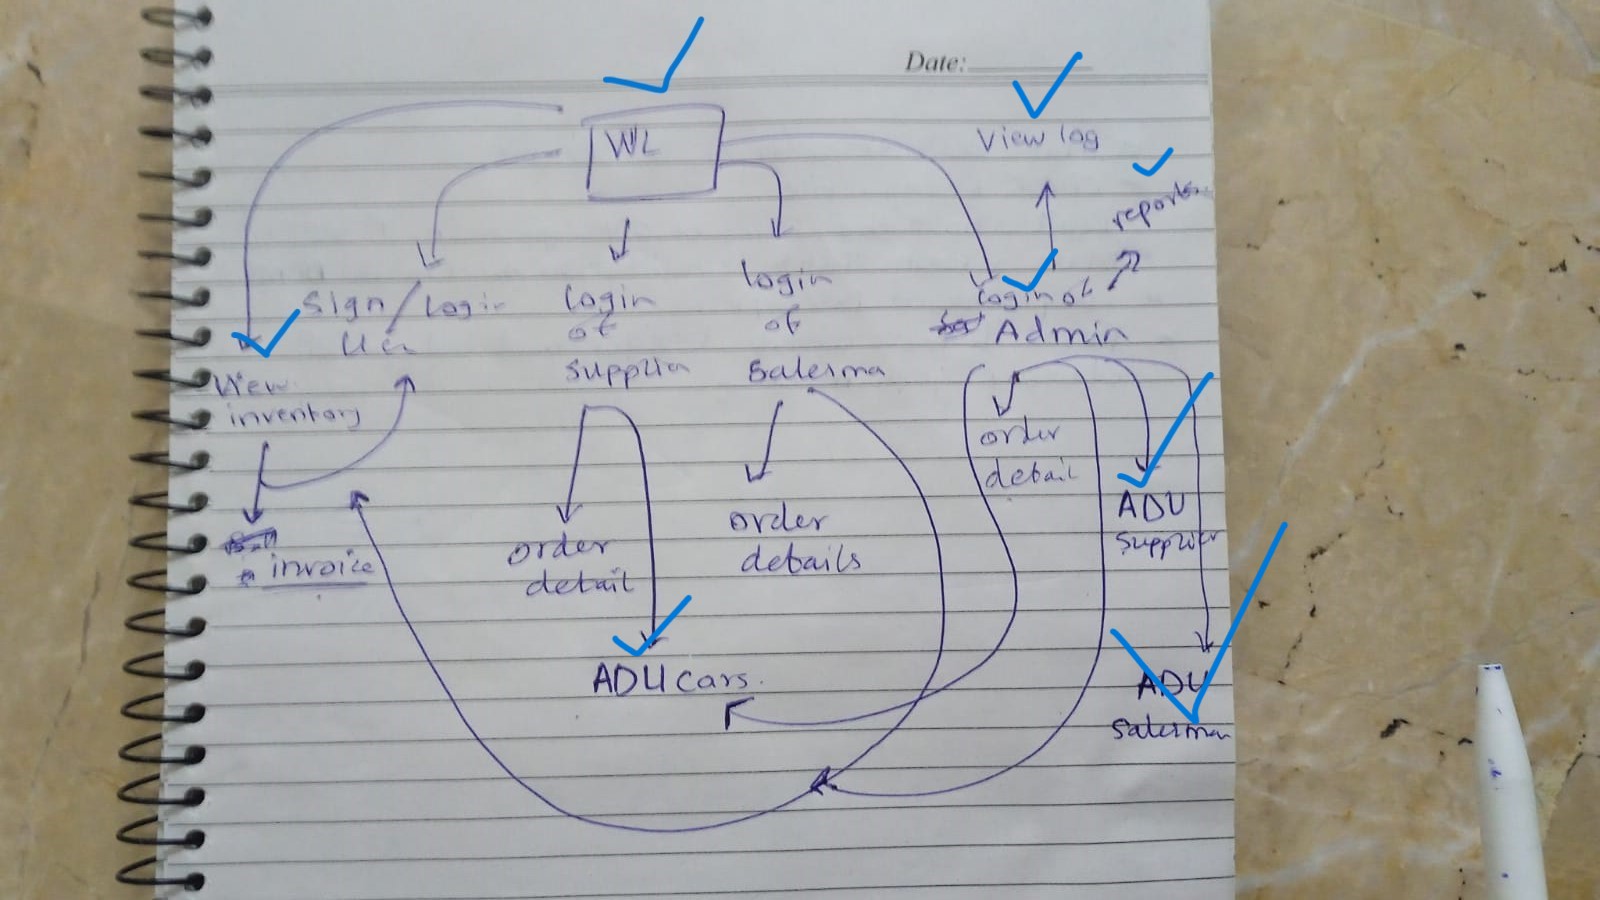 Date:
WL
View log
reports
Sign / Login
login
of
supplier
login
of
Salesma
Login of
Admin
View
inventory
invoice
order
detail
order
details
order
detail
ADU
supplier
ADU cars.
ADU
Salesman